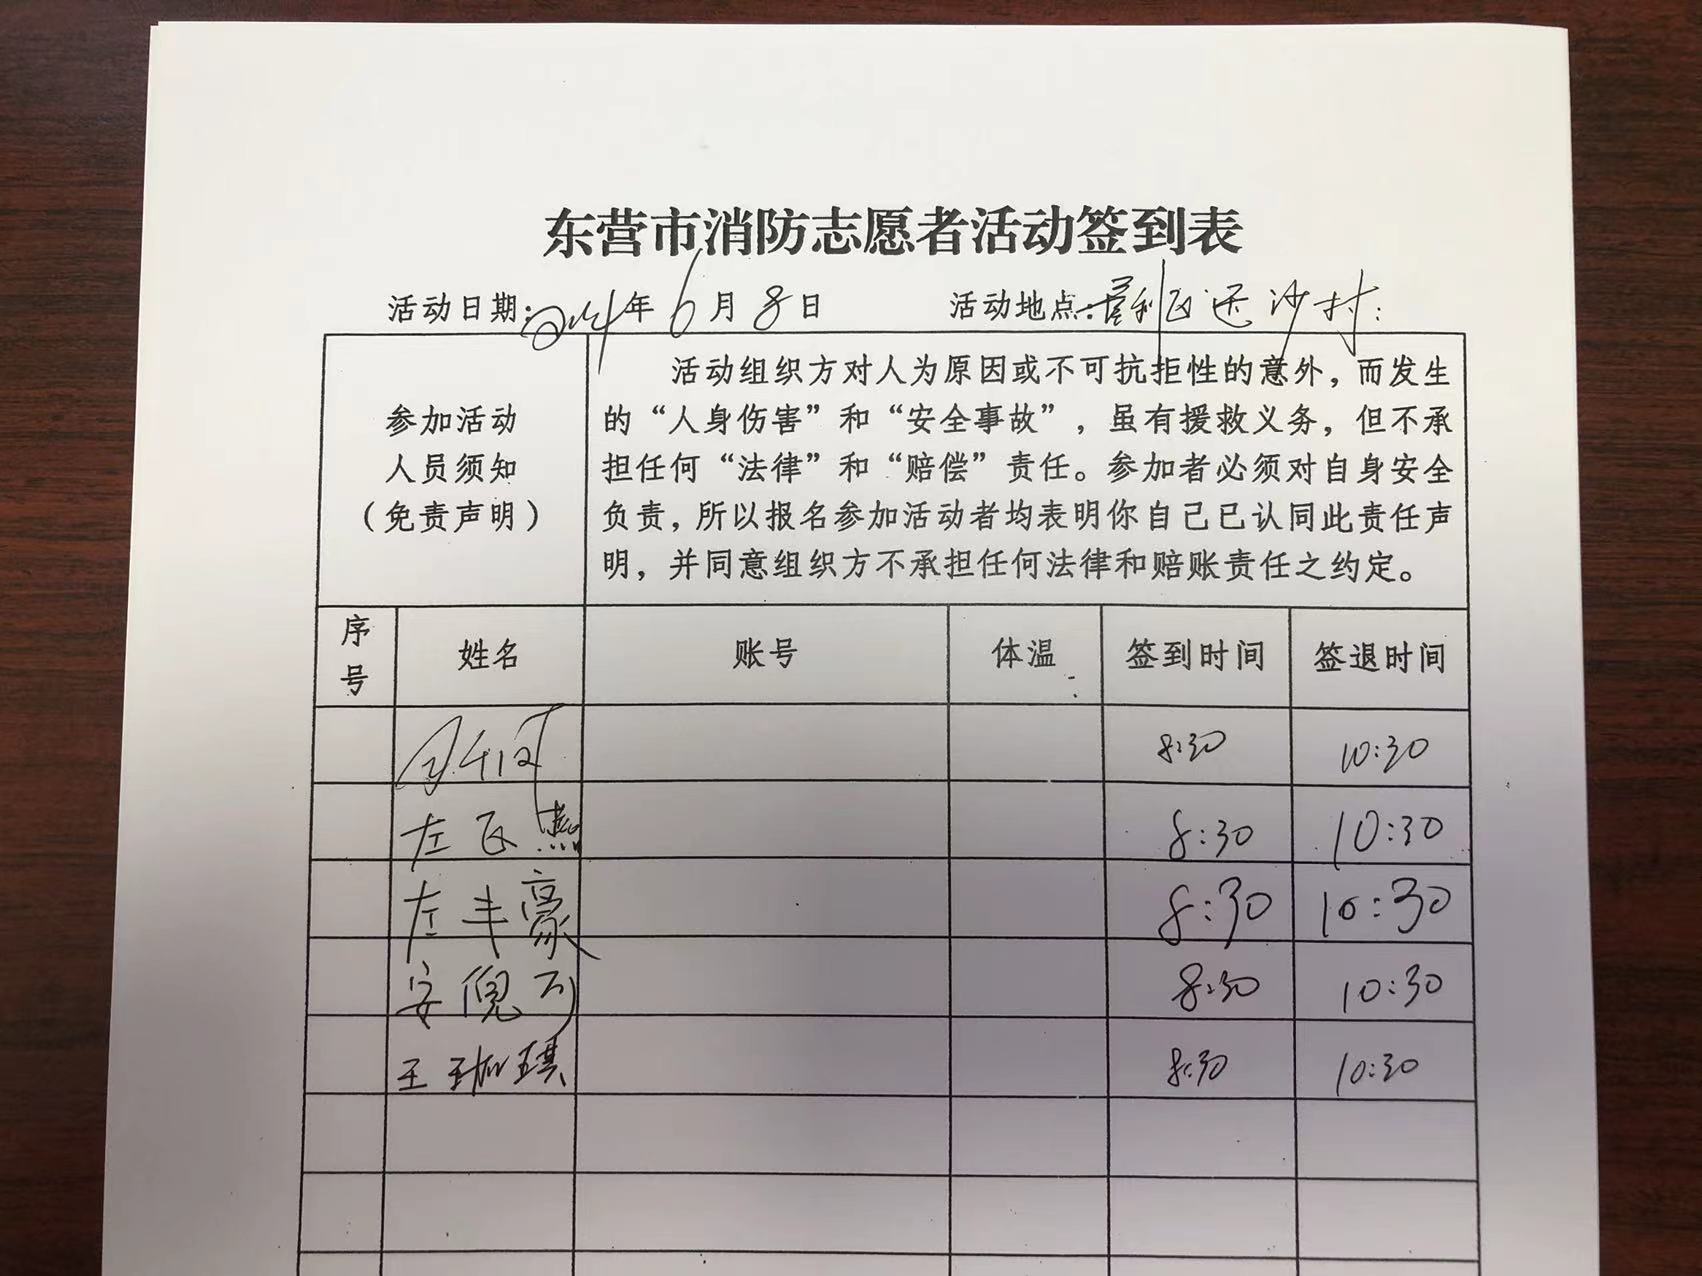 东营市消防志愿者活动签到表
活动日期:2024年6月8日 活动地点:垦利区 沙村
活动组织方对人为原因或不可抗拒性的意外，而发生
参加活动 的“人身伤害”和“安全事故”，虽有援救义务，但不承
人员须知 担任何“法律”和“赔偿”责任。参加者必须对自身安全
（免责声明） 负责，所以报名参加活动者均表明你自己已认同此责任声
明，并同意组织方不承担任何法律和赔账责任之约定。
序号 姓名 账号 体温 签到时间 签退时间
8:30 10:30
左飞燕 8:30 10:30
左丰豪 8:30 10:30
安倪可 8:30 10:30
王珈琪 8:30 10:30